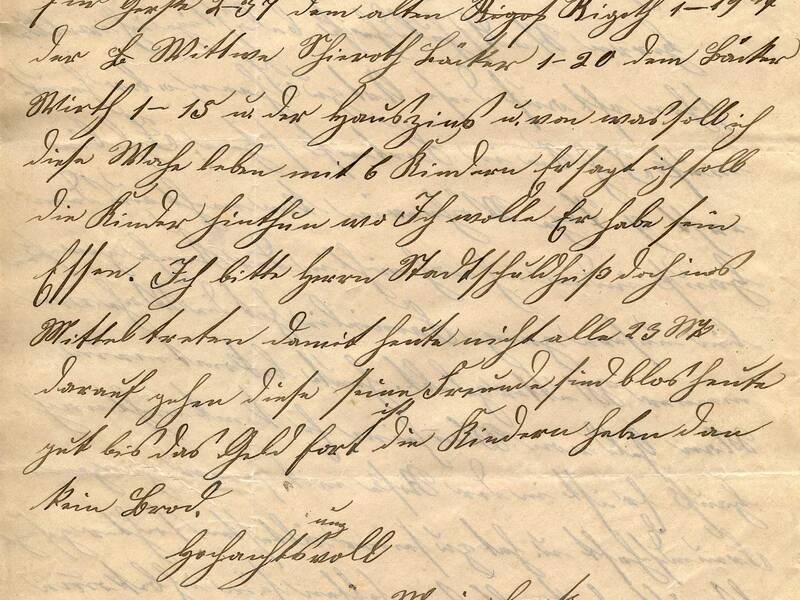 für Gerste 2-37 dem alten Rigoth 1-
der Wittwe Schieroth Bäcker 1-20 dem Bäcker
Wirth 1-15 u. der Hauszins u. von was soll ich
diese Wohe leben mit 6 Kindern Er sagt ich soll
die Kinder hinthun wo Ich wolle Er habe sein
Essen. Ich bitte Herrn Stadtschuldheiß doch ins
Mittel treten damit heute nicht alle 23 Mk
darauf gehen diese seine Freunde sind blos heute
gut bis das Geld fort ist die Kindern haben dan
kein Brod.
Hochachtungsvoll